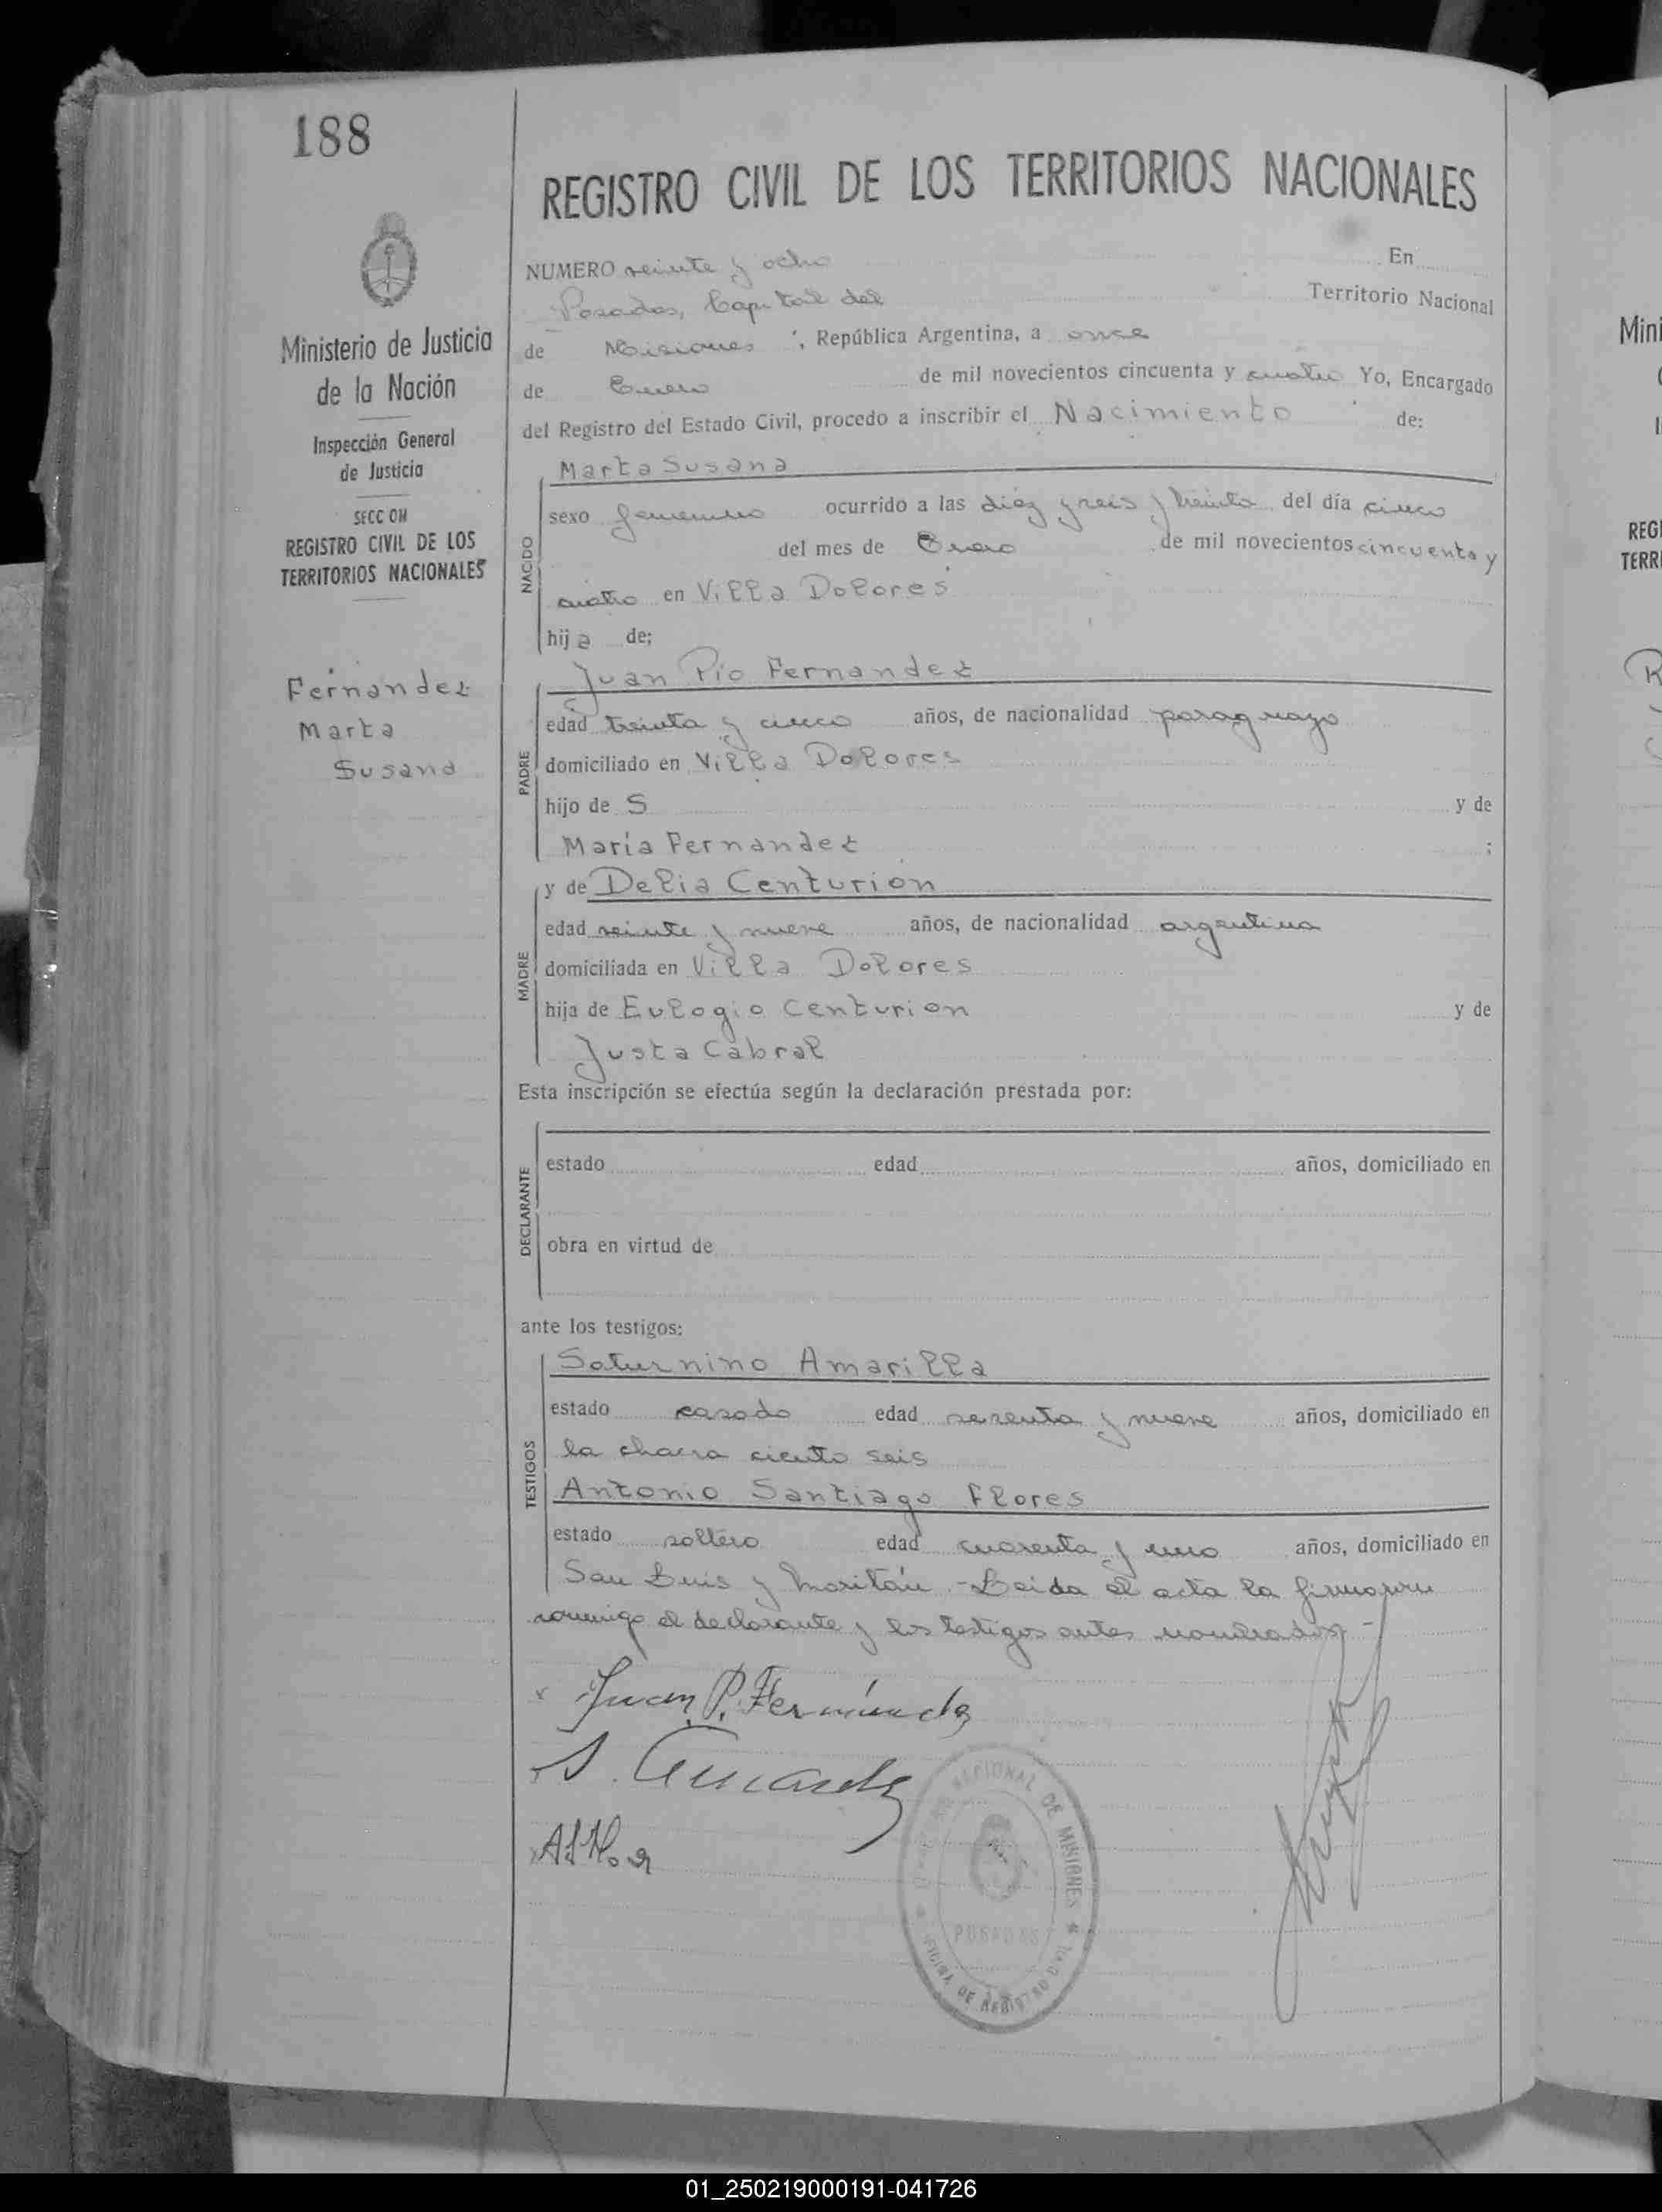 188
Ministerio de Justicia
de la Nación
Inspección General
de Justicia
SECC ON
REGISTRO CIVIL DE LOS
TERRITORIOS NACIONALES
Fernandez
Marta
Susana
REGISTRO CIVIL DE LOS TERRITORIOS NACIONALES
NUMERO veinte y ocho En
Posadas, Capital del Territorio Nacional
de Misiones, República Argentina, a once
de Enero de mil novecientos cincuenta y cuatro Yo, Encargado
del Registro del Estado Civil, procedo a inscribir el Nacimiento de:
Marta Susana
NACIDO
sexo femenino ocurrido a las diez y seis y treinta del día cinco
del mes de Enero de mil novecientos cincuenta y
cuatro en Villa Dolores
hija de;
Juan Pío Fernandez
PADRE
edad treinta y cinco años, de nacionalidad paraguayo
domiciliado en Villa Dolores
hijo de S y de
María Fernandez ;
y de Delia Centurion
MADRE
edad veinte y nueve años, de nacionalidad argentina
domiciliada en Villa Dolores
hija de Eulogio Centurion y de
Justa Cabral
Esta inscripción se efectúa según la declaración prestada por:
DECLARANTE
estado edad años, domiciliado en
obra en virtud de
ante los testigos:
TESTIGOS
Saturnino Amarilla
estado casado edad años, domiciliado en
la chacra ciento seis
Antonio Santiago Flores
estado soltero edad cuarenta y uno años, domiciliado en
San Luis y - Leida el acta la firmaron
conmigo el declarante y los testigos antes nombrados -
Juan P. Fernández
S.
NACIONAL DE MISIONES
POSADAS
OFICINA DE REGISTRO CIVIL
Mini
REGI
TERRI
01_250219000191-041726